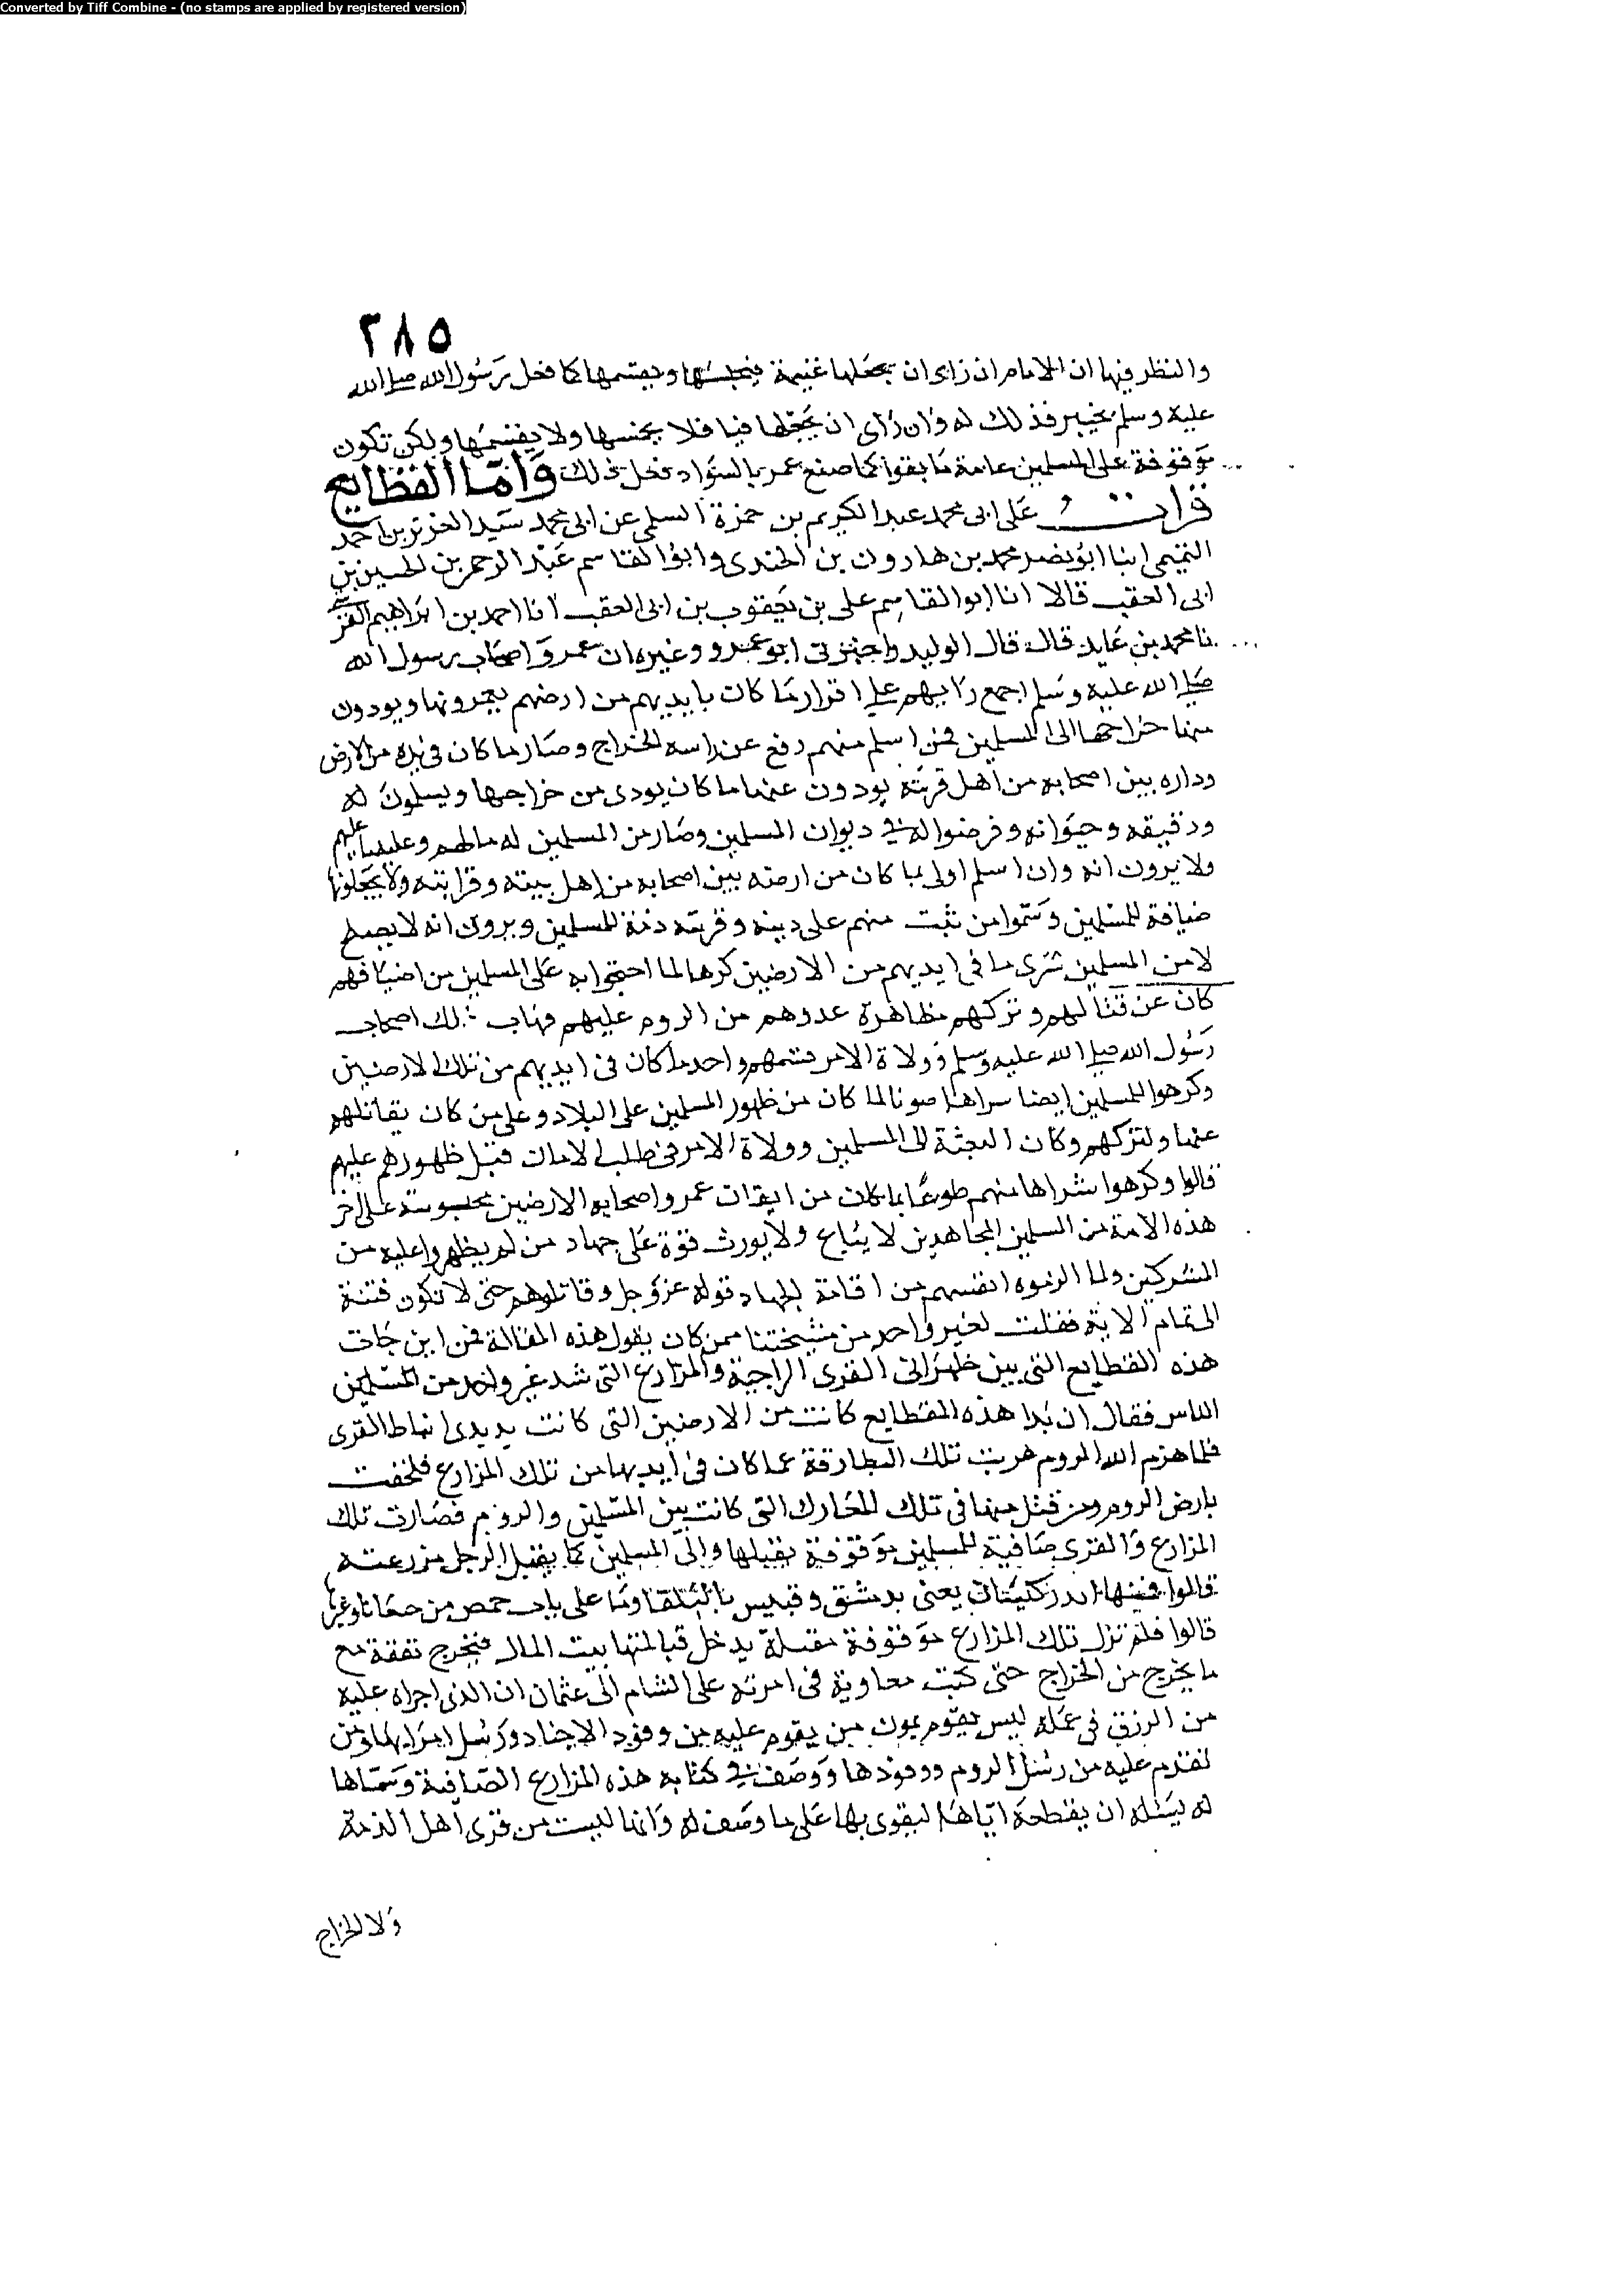 Converted by Tiff Combine - (no stamps are applied by registered version)
٢٨٥
والنظر فيها ان الامام ان راى ان يجعلها غنيمة فيخمسها ويقسمها كما فعل رسول الله صلى الله
عليه وسلم بخيبر فذلك له وان راى ان يجعلها فيا فلا يخمسها ولا يقسمها ولكن تكون
موقوفة على المسلمين عامة ما بقوا كما صنع عمر بالسواد فعل ذلك واما القطايع
قرات على ابى محمد عبد الكريم بن حمزة السلمى عن ابى محمد العزيز بن احمد
التميمى انبا ابو نصر محمد بن هارون بن الجندى وابو القاسم عبد الرحمن بن الحسين بن
ابى العقب قالا انا ابو القاسم على بن يعقوب بن ابى العقب انا احمد بن ابراهيم القرشى
نا محمد بن عايد قال قال الوليد واخبرنى ابو عمرو وغيره ان عمر واصحاب رسول الله
صلى الله عليه وسلم اجمع رايهم على اقرار ما كان بايديهم من ارضهم يعمرونها ويودون
منها خراجها الى المسلمين فمن اسلم منهم رفع عن راسه الخراج وصار ما كان فى يده من الارض
وداره بين اصحابه من اهل قريته يودون عنها ما كان يودى من خراجها ويسلمون له
ورقيقه وحيوانه وفرضوا له فى ديوان المسلمين وصار من المسلمين له ما لهم وعليه ما عليهم
ولا يرون انه وان اسلم اولى بما كان من ارضه بين اصحابه من اهل بيته وقرابته ولا يجعلونها
صافية للمسلمين وسموا من ثبت منهم على دينه وقريته ذمة للمسلمين ويرون انه لا يصلح
لا من المسلمين شرى ما فى ايديهم من الارضين كرها لما احتجوا به على المسلمين من
كان عن قتالهم وتركهم مظاهرة عدوهم من الروم عليهم فهاب ذلك اصحاب
رسول الله صلى الله عليه وسلم وولاة الامر قسمهم واحد ما كان فى ايديهم من تلك الارضين
وكرهوا للمسلمين ايضا سراها صونا لما كان من ظهور المسلمين على البلاد وعلى من كان يقاتلهم
عنها ولتركهم وكان البعثة الى المسلمين وولاة الامر فى طلب الامان قبل ظهورهم عليهم
قالوا وكرهوا شراها منهم طوعا بما كان من ايقاف عمر واصحابه الارضين محبوسة على اخر
هذه الامة من المسلمين المجاهدين لا يباع ولا يورث قوة على جهاد من لم يظهروا عليه من
المشركين ولما الزموه انفسهم من اقامة الجهاد قوله عز وجل وقاتلوهم حتى لا تكون فتنة
الى تمام الاية فقلت لغير واحد من مشيختنا ممن كان يقول هذه المقالة فمن اين جات
هذه القطايع التى بين ظهرانى القرى الراجية والمزارع التى شد غير واحد من المسلمين
الناس فقال ان بدا هذه القطايع كانت من الارضين التى كانت انباط القرى
فلما هزم الله الروم هربت تلك البطارقة عما كان فى ايديها من تلك المزارع فلحقت
بارض الروم ومن قتل منها فى تلك المعارك التى كانت بين المسلمين والروم فصارت تلك
المزارع والقرى صافية للمسلمين موقوفة يقبلها والى المسلمين كما يقبل الرجل مزرعته
قالوا فمنها يعنى بدمشق وقبيس بالبلقا وما على باب حمص من وغيرها
قالوا فلم تزل تلك المزارع موقوفة مقبلة يدخل قبالتها بيت المال فتخرج نفقة مع
ما يخرج من الخراج حتى كتب معاوية فى امرته على الشام الى عثمان ان الذى اجراه عليه
من الرزق فى عمله ليس يقوم بمون من يقوم عليه من وفود الاجناد ورسل امرايها ومن
تقدم عليه من رسل الروم ووفودها ووصف فى كتابه هذه المزارع الصافية وسماها
له يسله ان يقطعه اياها ليقوى بها على ما وصف له وانها ليست من قرى اهل الذمة
ولا الخراج